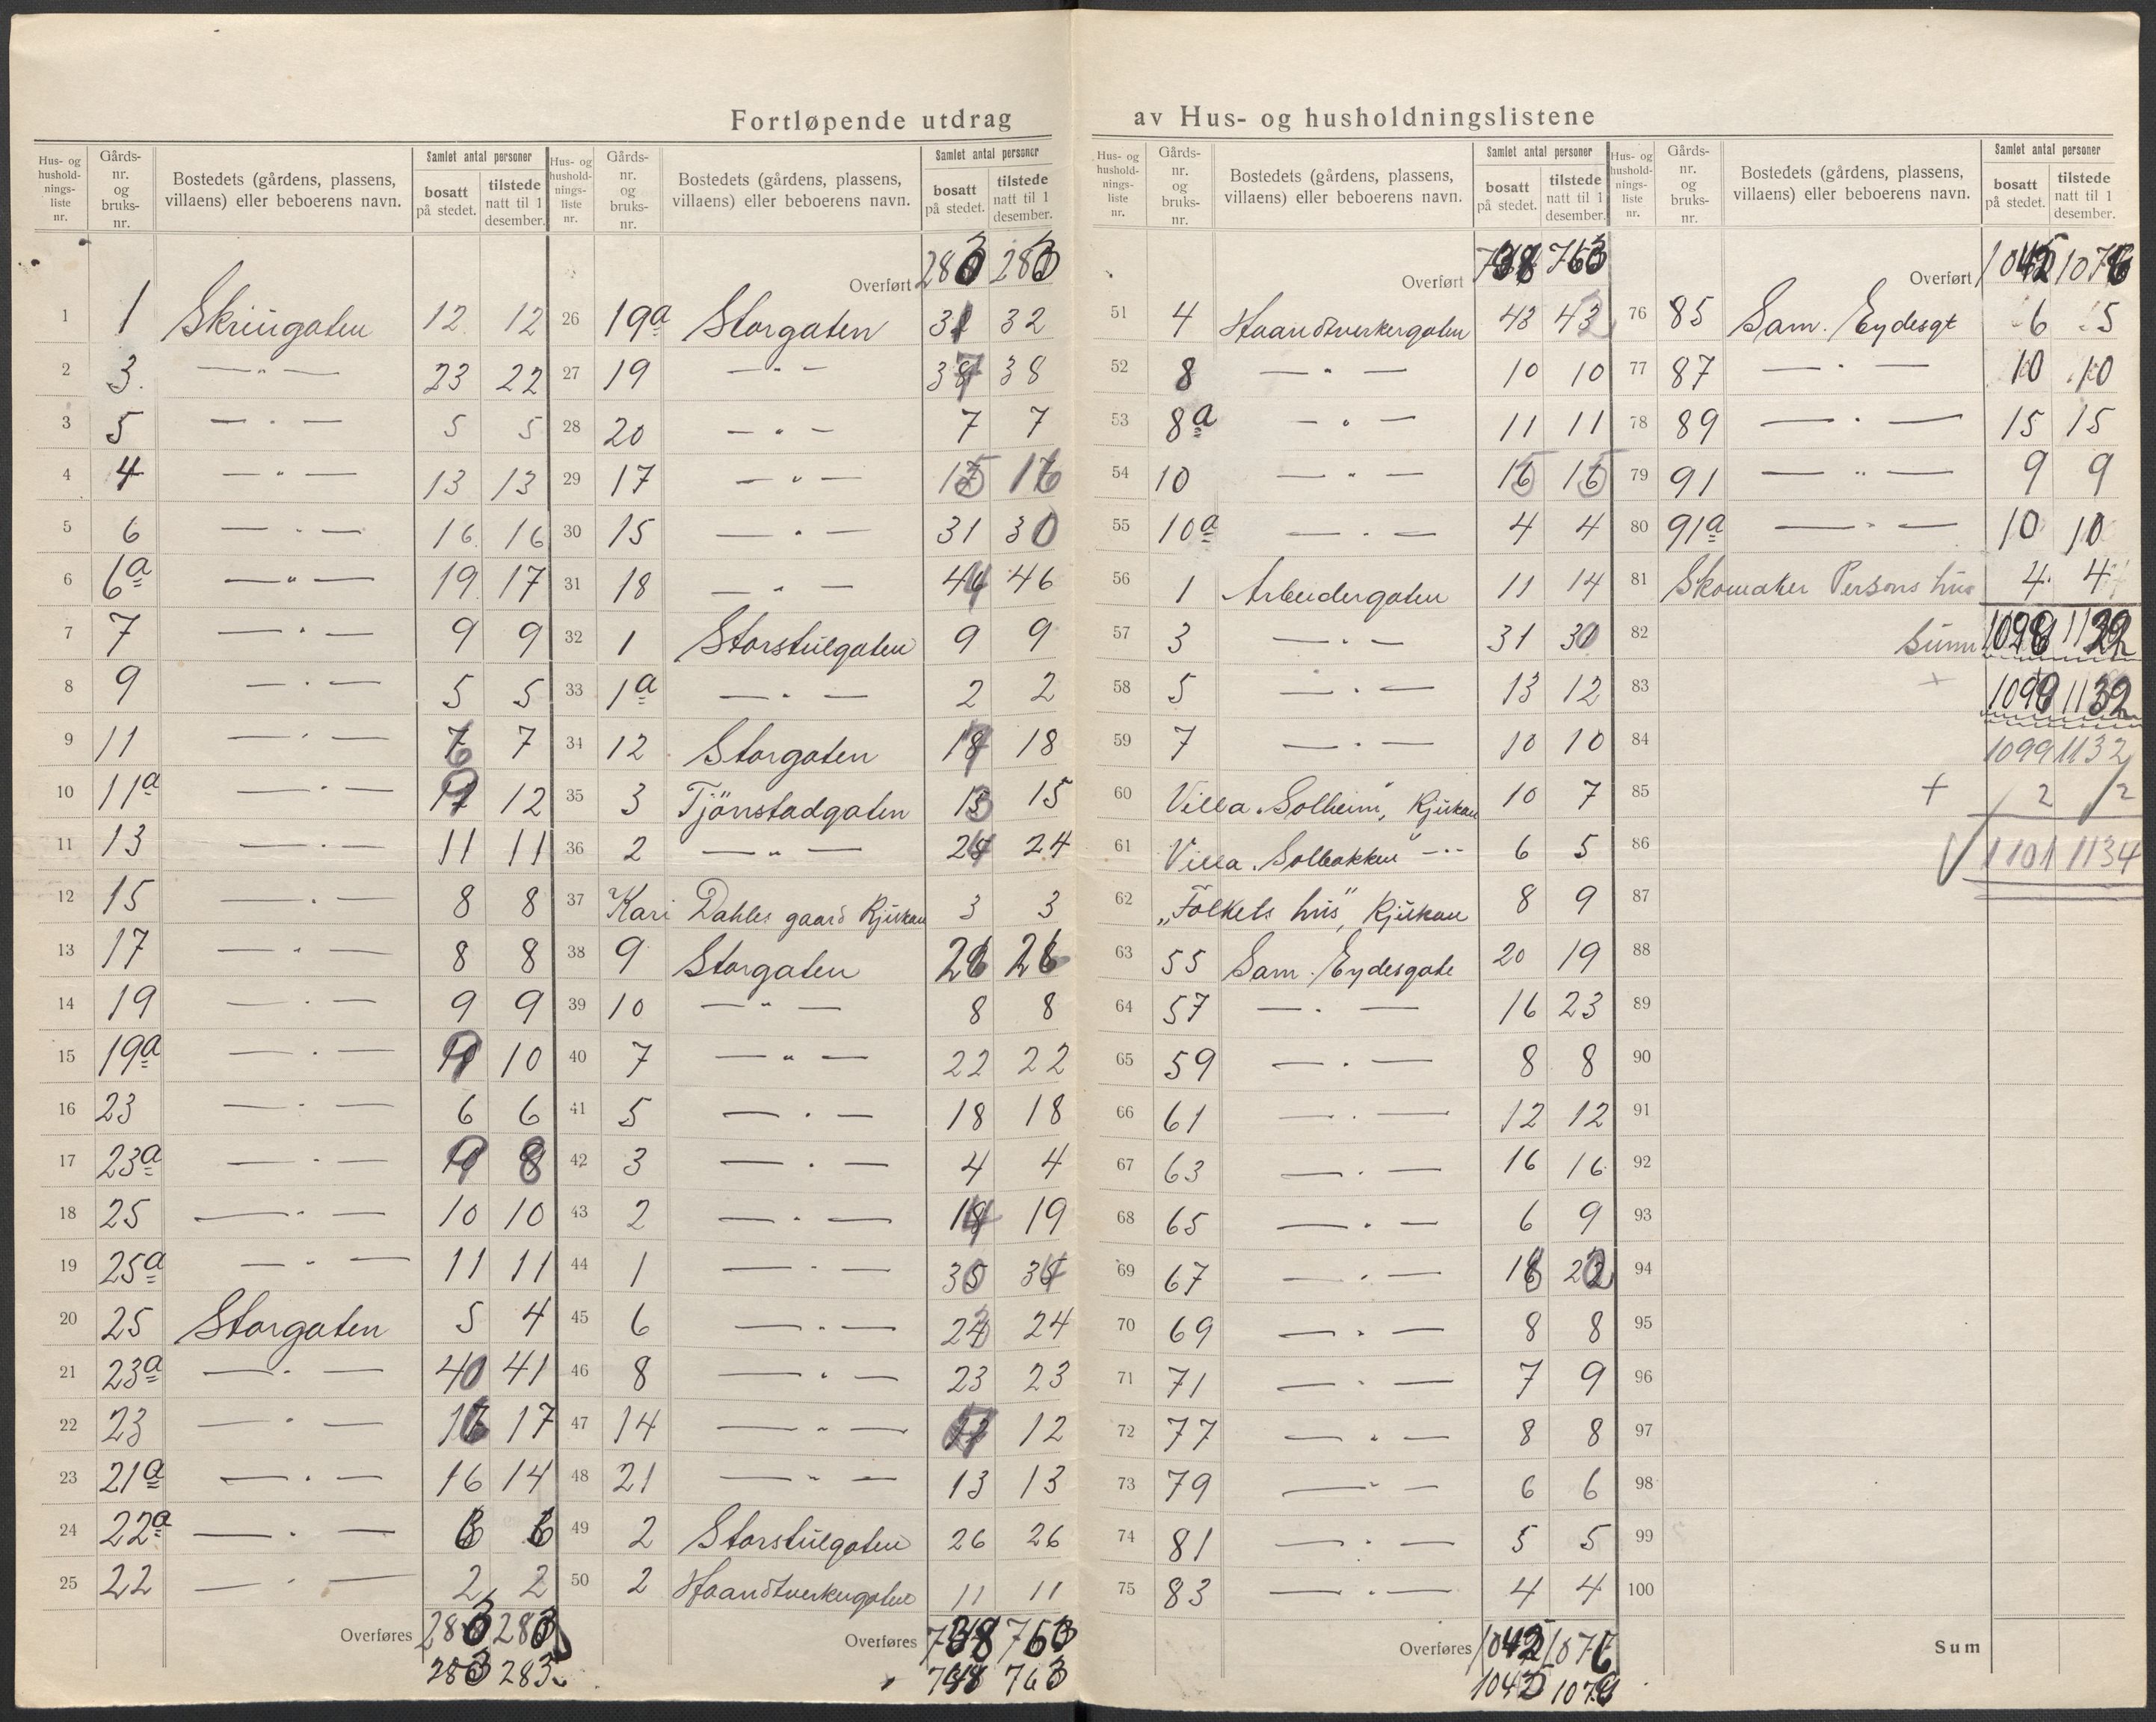 Fortløpende utdrag av Hus- og husholdningslistene
Hus- og hushold- nings- liste nr. | Gårds- nr. og bruks- nr. | Bostedets (gårdens, plassens, villaens) eller beboerens navn. | Samlet antal personer | bosatt på stedet. | tilstede natt til 1 desember.
1 | 1 | Skriugaten | 12 | 12
2 | 3. | — " — | 23 | 22
3 | 5 | — " — | 5 | 5
4 | 4 | — " — | 13 | 13
5 | 6 | — " — | 16 | 16
6 | 6a | — " — | 19 | 17
7 | 7 | — " — | 9 | 9
8 | 9 | — " — | 5 | 5
9 | 11 | — " — | | 7
10 | 11a | — " — | | 12
11 | 13 | — " — | 11 | 11
12 | 15 | — " — | 8 | 8
13 | 17 | — " — | 8 | 8
14 | 19 | — " — | 9 | 9
15 | 19a | — " — | | 10
16 | 23 | — " — | 6 | 6
17 | 23a | — " — | 9 | 8
18 | 25 | — " — | 10 | 10
19 | 25a | — " — | 11 | 11
20 | 25 | Storgaten | 5 | 4
21 | 23a | — " — | 40 | 41
22 | 23 | — " — | 16 | 17
23 | 21a | — " — | 16 | 14
24 | 22a | — " — | 6 | 6
25 | 22 | — " — | 2 | 2
Overføres 283 283
283 283
Hus- og hushold- nings- liste nr. | Gårds- nr. og bruks- nr. | Bostedets (gårdens, plassens, villaens) eller beboerens navn. | Samlet antal personer | bosatt på stedet. | tilstede natt til 1 desember.
Overført 283 283
26 | 19a | Storgaten | 31 | 32
27 | 19 | — " — | 37 | 38
28 | 20 | — " — | 7 | 7
29 | 17 | — " — | 15 | 16
30 | 15 | — " — | 31 | 30
31 | 18 | — " — | 44 | 46
32 | 1 | Storstulgaten | 9 | 9
33 | 1a | — " — | 2 | 2
34 | 12 | Storgaten | 17 | 18
35 | 3 | Tjönstadgaten | 13 | 15
36 | 2 | — " — | 24 | 24
37 | Kari Dahles gaard Rjukan | 3 | 3
38 | 9 | Storgaten | 26 | 26
39 | 10 | — " — | 8 | 8
40 | 7 | — " — | 22 | 22
41 | 5 | — " — | 18 | 18
42 | 3 | — " — | 4 | 4
43 | 2 | — " — | | 19
44 | 1 | — " — | 30 | 34
45 | 6 | — " — | 23 | 24
46 | 8 | — " — | 23 | 23
47 | 14 | — " — | | 12
48 | 21 | — " — | 13 | 13
49 | 2 | Storstulgaten | 26 | 26
50 | 2 | Haandtverkergaten | 11 | 11
Overføres 738 763
738 763
Hus- og hushold- nings- liste nr. | Gårds- nr. og bruks- nr. | Bostedets (gårdens, plassens, villaens) eller beboerens navn. | Samlet antal personer | bosatt på stedet. | tilstede natt til 1 desember.
Overført 738 763
51 | 4 | Haandtverkergaten | 43 | 43
52 | 8 | — " — | 10 | 10
53 | 8a | — " — | 11 | 11
54 | 10 | — " — | 15 | 15
55 | 10a | — " — | 4 | 4
56 | 1 | Arbeidergaten | 11 | 14
57 | 3 | — " — | 31 | 30
58 | 5 | — " — | 13 | 12
59 | 7 | — " — | 10 | 10
60 | Villa "Solheim", Rjukan | 10 | 7
61 | Villa "Solbakken" — " — | 6 | 5
62 | "Folkets hus", Rjukan | 8 | 9
63 | 55 | Sam. Eydesgate | 20 | 19
64 | 57 | — " — | 16 | 23
65 | 59 | — " — | 8 | 8
66 | 61 | — " — | 12 | 12
67 | 63 | — " — | 16 | 16
68 | 65 | — " — | 6 | 9
69 | 67 | — " — | 18 | 22
70 | 69 | — " — | 8 | 8
71 | 71 | — " — | 7 | 9
72 | 77 | — " — | 8 | 8
73 | 79 | — " — | 6 | 6
74 | 81 | — " — | 5 | 5
75 | 83 | — " — | 4 | 4
Overføres 1045 1076
1045 1079
Hus- og hushold- nings- liste nr. | Gårds- nr. og bruks- nr. | Bostedets (gårdens, plassens, villaens) eller beboerens navn. | Samlet antal personer | bosatt på stedet. | tilstede natt til 1 desember.
Overført 1045 1076
76 | 85 | Sam. Eydesgt | 6 | 5
77 | 87 | — " — | 10 | 10
78 | 89 | — " — | 15 | 15
79 | 91 | — " — | 9 | 9
80 | 91a | — " — | 10 | 10
81 | Skomaker Persons hus | 4 | 4
82 | Sum 1098 1132
83 | + 1099 1132
84 | 1099 1132
85 | + 2 2
86 | 1101 1134
87
88
89
90
91
92
93
94
95
96
97
98
99
100
Sum